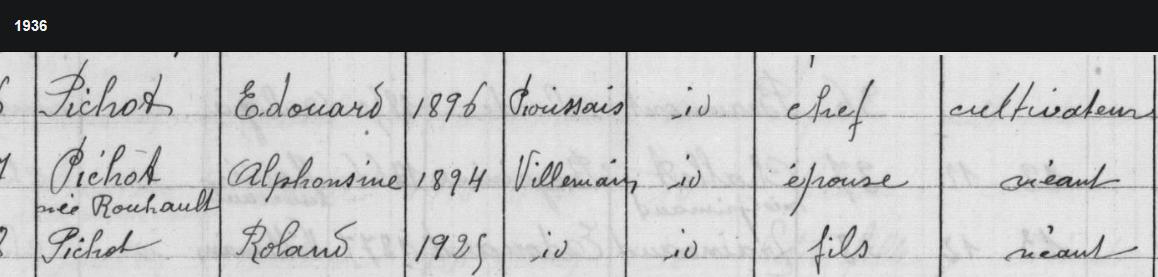 1936
Pichot Edouard 1896 Proussais id chef cultivateur
Pichot Alphonsine 1894 Villemain id épouse néant
née Rouhault
Pichot Roland 1925 id id fils néant